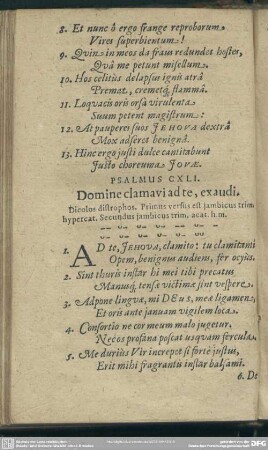 8. Et nunc ô ergo frange reproborum
Vires superbientum!
9. Quin in meos da fraus redundet hostes,
Quâ me petunt misellum.
10. Hos celitùs delapsus ignis atrâ
Premat, cremetq́, flammâ.
11. Loquacis oris orsa virulenta
Suum petent magistrum:
12. At pauperes suos JEHOVA dextrâ
Mox adseret benignâ.
13. Hinc ergo justi dulce cantitabunt
Justo choreuma JOVÆ.
PSALMUS CXLI.
Domine clamavi ad te, exaudi.
Dicolos distrophos. Primus versus est jambicus trim.
hypercat. Secundus jambicus trim. acat. h. m.
1. AD te, JEHOVA, clamito: tu clamitanti
Opem, benignus audiens, fer ocyùs.
2. Sint thuris instar hi mei tibi precatus
Manusq́, tensæ victimæ sint vespere.
3. Adpone linguæ, mi DEus, meæ ligamen,
Et oris ante januam vigilem loca.
4. Consortio ne cor meum malo jugetur.
Nec os profana poscat usquam fercula.
5. Me duriùs Vir increpet si fortè justus,
Erit mihi fragrantis instar balsami.
6. De